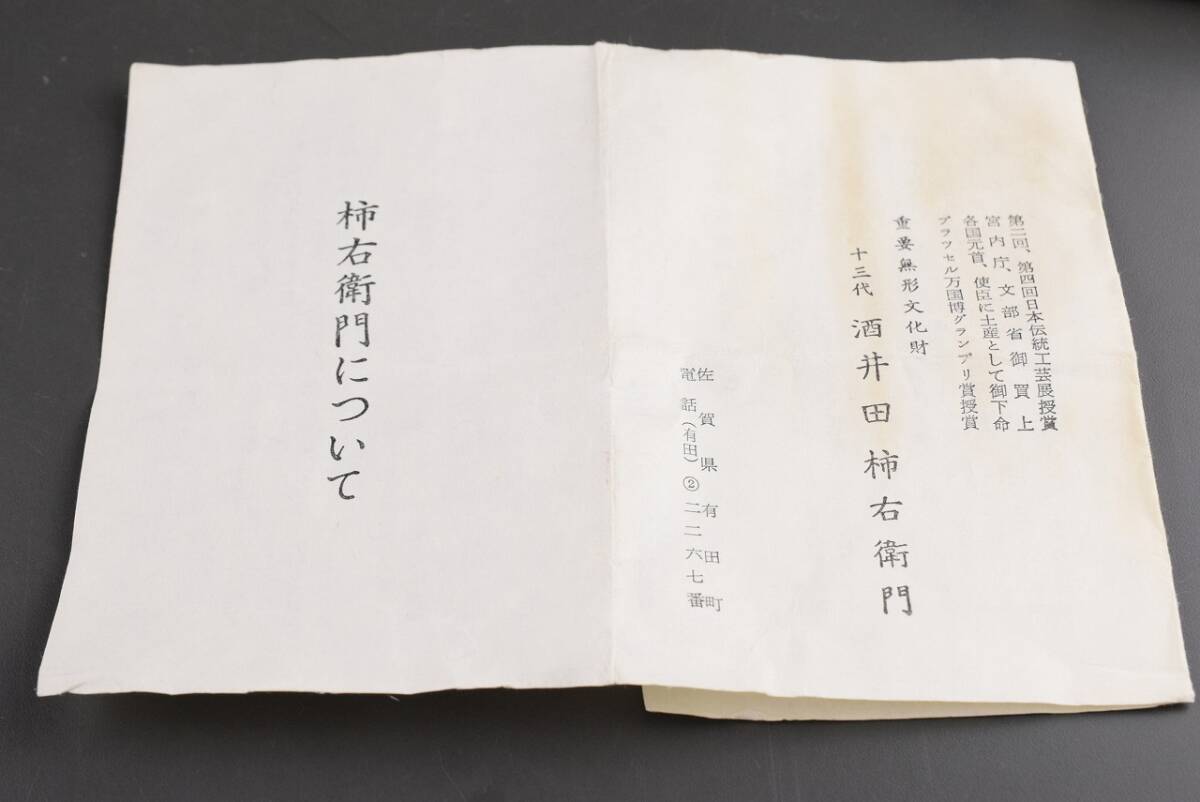 第二回、第四回日本伝統工芸展授賞
宮内庁、文部省御買上
各国元首、使臣に土産として御下命
ブラッセル万国博グランプリ賞授賞
重要無形文化財
十三代 酒井田柿右衛門
佐賀県有田町
電話(有田)②二二六七番
柿右衛門について